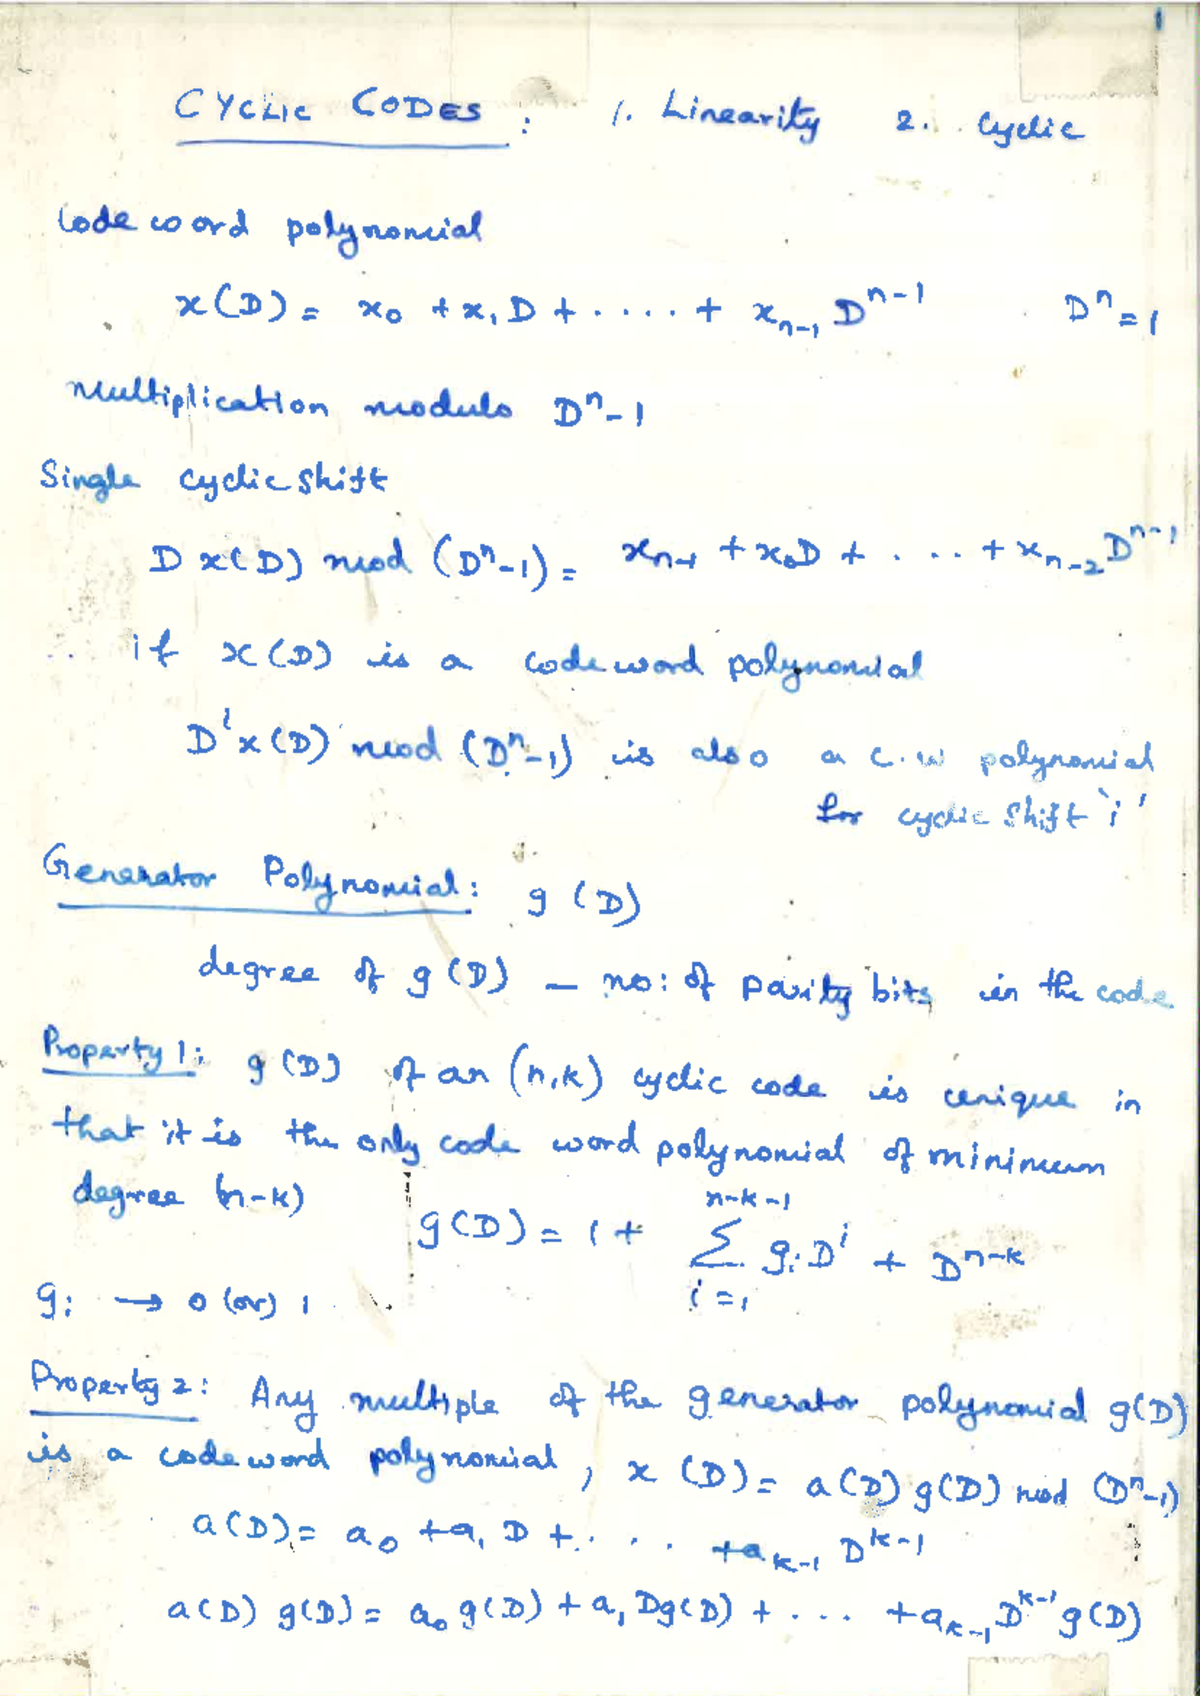 1
CYCLIC CODES : 1. Linearity 2. Cyclic
Code word polynomial
x(D) = x₀ + x₁D + ..... + xₙ₋₁ Dⁿ⁻¹ Dⁿ = 1
Multiplication modulo Dⁿ-1
Single cyclic shift
D x(D) mod (Dⁿ-1) = xₙ₋₁ + x₀D + . ... + xₙ₋₂Dⁿ⁻¹
if x(D) is a code word polynomial
Dⁱx(D) mod (Dⁿ-1) is also a c.w polynomial
for cyclic shift 'i'
Generator Polynomial: g(D)
degree of g(D) — no: of parity bits in the code
Property 1: g(D) of an (n,k) cyclic code is unique in
that it is the only code word polynomial of minimum
degree (n-k)
g(D) = 1 + ∑ᵢ₌₁ⁿ⁻ᵏ⁻¹ gᵢDⁱ + Dⁿ⁻ᵏ
gᵢ → 0 (or) 1
Property 2: Any multiple of the generator polynomial g(D)
is a code word polynomial, x(D) = a(D) g(D) mod (Dⁿ-1)
a(D) = a₀ + a₁ D + . . . . + aₖ₋₁ Dᵏ⁻¹
a(D) g(D) = a₀ g(D) + a₁ Dg(D) + . ... + aₖ₋₁ Dᵏ⁻¹ g(D)